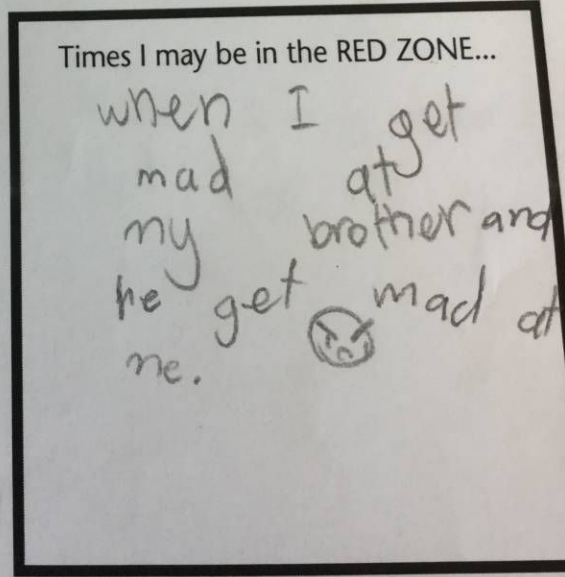 Times I may be in the RED ZONE...
when I get
mad at
my brother and
he get mad at
me.